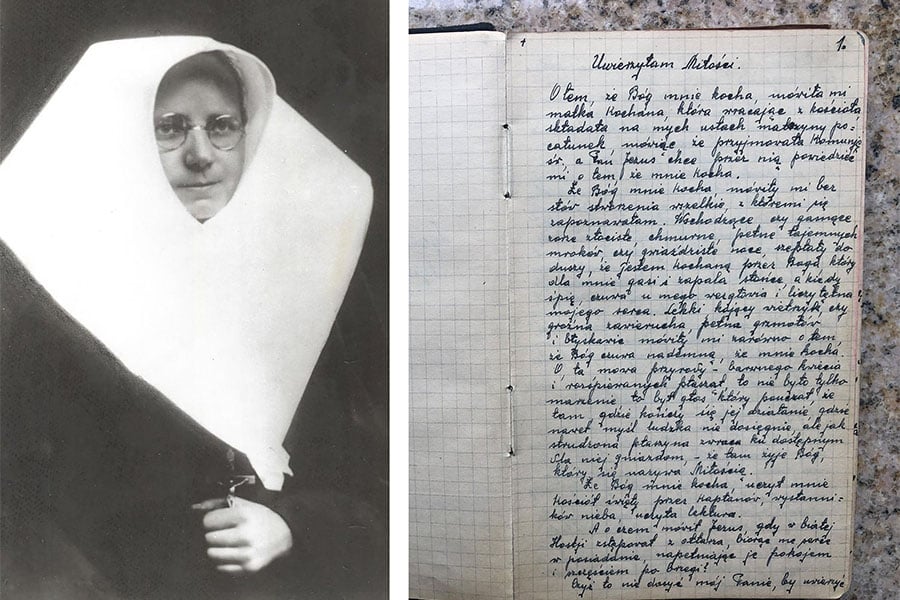 + 1.
Uwierzyłam Miłości.
O tem, że Bóg mnie kocha, mówiła mi
matka kochana, która wracając z kościoła
składała na mych ustach matczyny po-
całunek, mówiąc, że przyjmowała Komunję
św. a Pan Jezus chce przez nią powiedzieć
mi o tem, że mnie kocha.
Że Bóg mnie kocha, mówiły mi bez
słów stworzenia wszelkie, z któremi się
zapoznawałam. Wschodzące, czy gasnące
zorze złociste, chmurne, pełne tajemnych
mroków, czy gwiaździste noce, szeptały do
duszy, że jestem kochaną przez Boga, który
dla mnie gasi i zapala słońce, a kiedy
śpię, czuwa u mego wezgłowia i liczy tętna
mojego serca. Lekki kojący wietrzyk, czy
groźna zawierucha, pełna grzmotów
i błyskawic mówiły mi zarówno o tem
że Bóg czuwa nademną, że mnie kocha.
O ta mowa przyrody - barwnego kwiecia
i rozśpiewanych ptasząt, to nie było tylko
marzenie to był głos który pouczał, że
tam, gdzie kończy się jej działanie, gdzie
nawet myśl ludzka nie dosięgnie, ale jak
strudzona ptaszyna zwraca ku dostępnym
dla niej gniazdom, - że tam żyje Bóg,
który się nazywa Miłością.
Że Bóg mnie kocha uczył mnie
Kościół święty przez Kapłanów, wysłanni-
ków nieba, uczyła lektura.
A o czem mówił Jezus, gdy w białej
Hostji zstępował z ołtarza biorąc me serce
w posiadanie, napełniając je pokojem
i szczęściem po brzegi?
Czyż to nie dosyć mój Panie, by uwierzyć